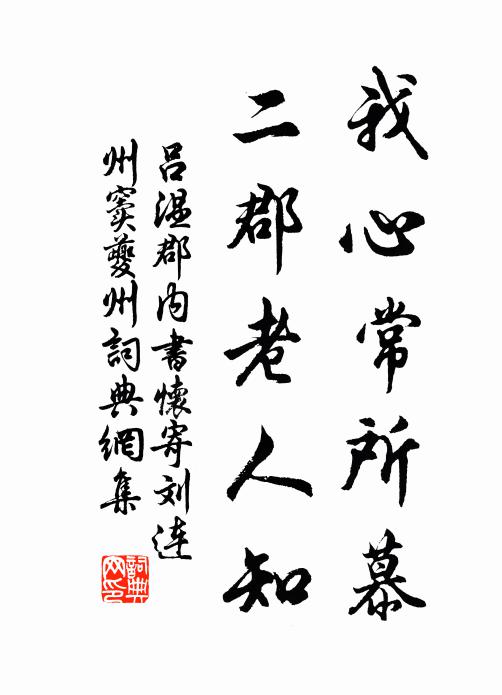 我心常所慕
二郡老人知
吕温郡内书懷寄刘连
州窦夔州詞典網集
詞典
网印